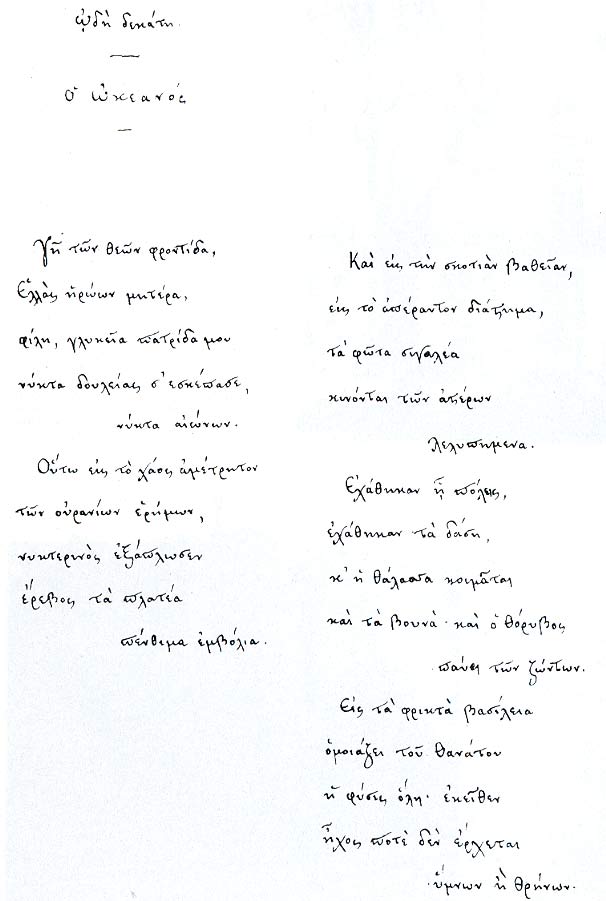 ᾠδὴ δεκάτη.
Ὁ Ὠκεανός
Γῆ τῶν θεῶν φροντίδα,
Ἑλλὰς ἡρώων μητέρα,
φίλη, γλυκεῖα πατρίδα μου
νύκτα δουλείας σ' ἐσκέπασε,
νύκτα αἰώνων.
Οὕτω εἰς τὸ χάος ἀμέτρητον
τῶν οὐρανίων ἐρήμων,
νυκτερινὸς ἐξάπλωσεν
ἔρεβος τὰ πλατέα
πένθιμα ἐμβόλια.
Καὶ εἰς τὴν σκοτιὰν βαθεῖαν,
εἰς τὸ ἀπέραντον διάστημα,
τὰ φῶτα σιγαλέα
κινόνται τῶν ἀστέρων
λελυπημενα.
Ἐχάθηκαν ᾑ πόλεις,
ἐχάθηκαν τὰ δάση,
κ' ἡ θάλασσα κοιμᾶται
καὶ τὰ βουνὰ· καὶ ὁ θόρυβος
παύει τῶν ζώντων.
Εἰς τὰ φρικτὰ βασίλεια
ὁμοιάζει τοῦ θανάτου
ἡ φύσις ὅλη· ἐκεῖθεν
ἦχος ποτὲ δὲν ἔρχεται
ὕμνων ἢ θρήνων.